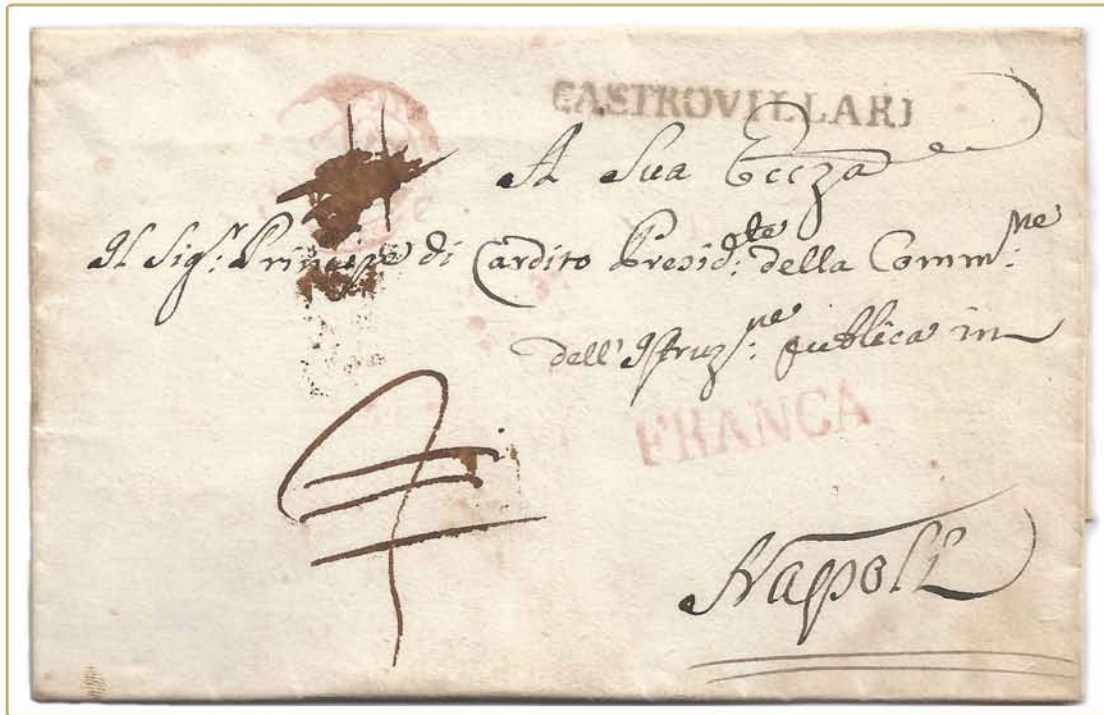 CASTROVILLARI
A Sua Eccza
Il Sig.r Principe di Cardito Presid.te della Comm.ne
dell'Istruz.ne publica in
FRANCA
Napoli